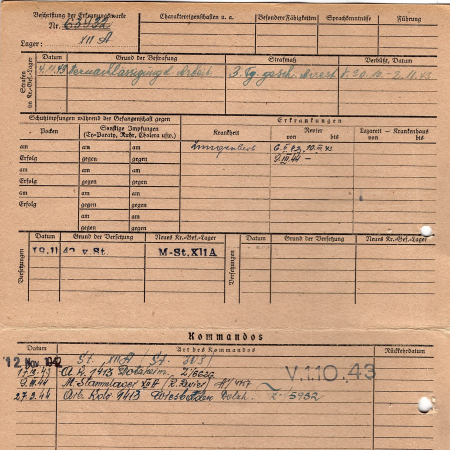 Beschriftung der Erkennungsmarke
Nr. 63432
Lager: XII A
Charaktereigenschaften u. a.
Besondere Fähigkeiten
Sprachkenntnisse
Führung
Strafen im Kr.-Gef.-Lager
Datum
Grund der Bestrafung
Strafmaß
Verbüßt, Datum
Vernachlässigung d. Arbeit
3 Tg. gesch. Arrest
30.10.-2.11.43
Schutzimpfungen während der Gefangenschaft gegen
Erkrankungen
Pocken
Sonstige Impfungen
(Ty-Paraty, Ruhr, Cholera usw.)
Krankheit
Revier
von bis
Lazarett - Krankenhaus
von bis
am am
Erfolg gegen gegen
am am
Erfolg gegen gegen
am am
Erfolg gegen gegen
am am
gegen gegen
am am
gegen gegen
9.III.44 –
Versetzungen
Datum
Grund der Versetzung
Neues Kr.-Gef.-Lager
Versetzungen
Datum
Grund der Versetzung
Neues Kr.-Gef.-Lager
19.11.42 v. St. M-St.XIIA
Kommandos
Datum
Art des Kommandos
Rückkehrdatum
12. Nov. 1942 St. XII A
V.1.10.43
A. K. 1413 Dotzheim
9.III.44 M. Stammlager XII A (Z. Revier)
27.3.44 Arb. Kdo 1413 Wiesbaden Dotzh. 5932